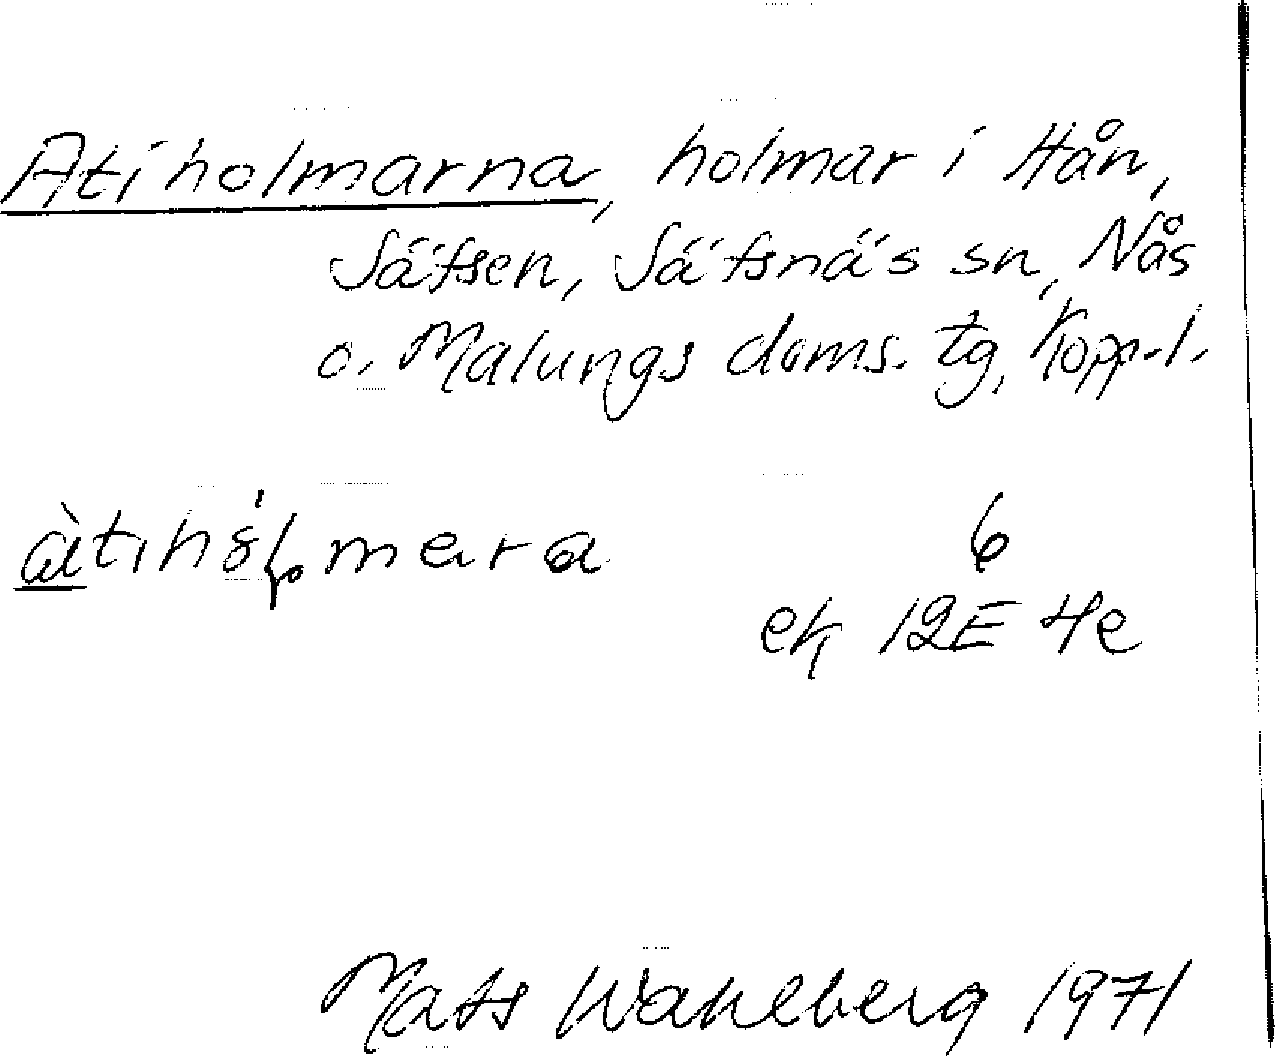 Atiholmarna, holmar i Hån,
Säfsen, Säfsnäs sn, Nås
o. Malungs doms. tg, Kopp. l.
àtihó̵ļmara
6
ek 12E 4e
Mats Wahlberg 1971